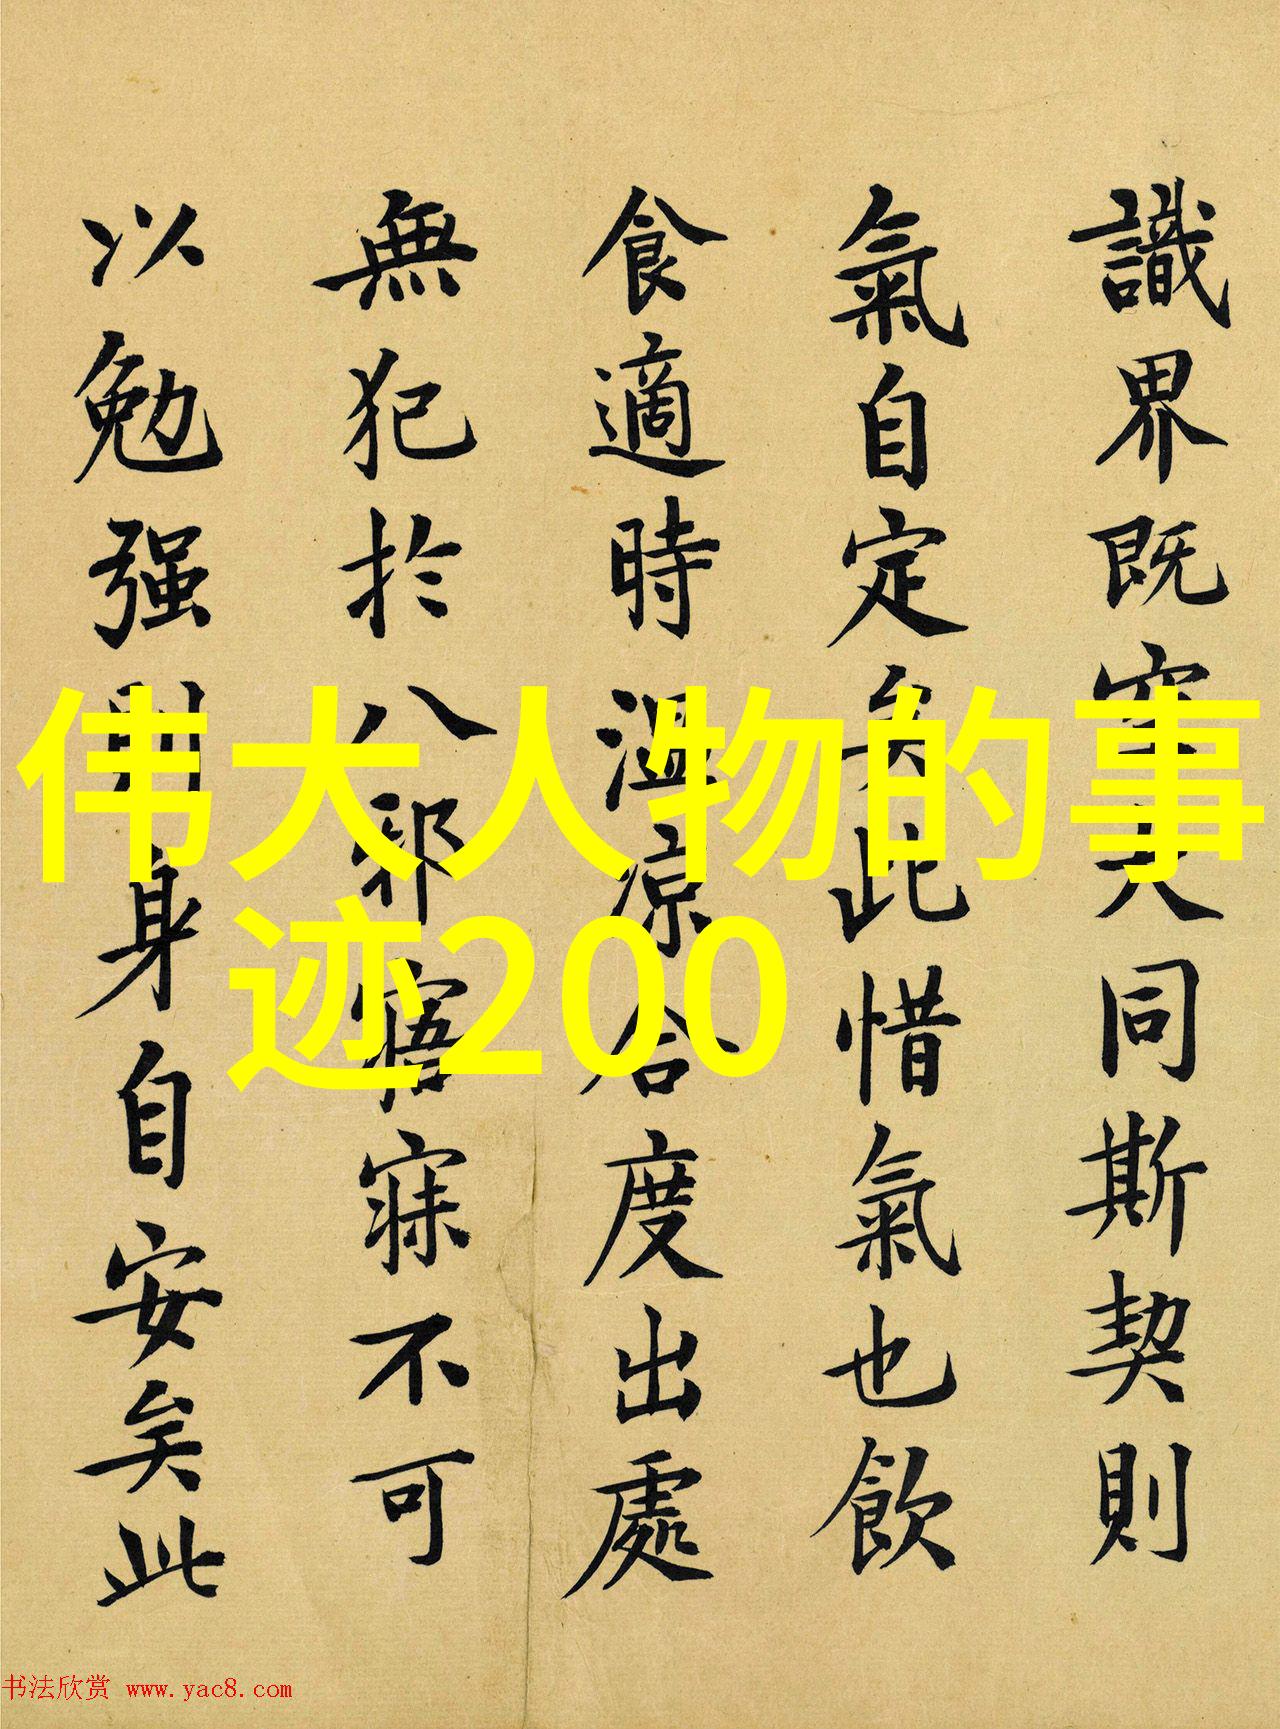 識界既空大同斯契則
氣自定矣此惜氣也飲
食適時溫涼合度出處
無犯於八邪寤寐不可
以勉强則身自安矣此
伟大人物的事
迹200
书法欣赏 www.yac8.com